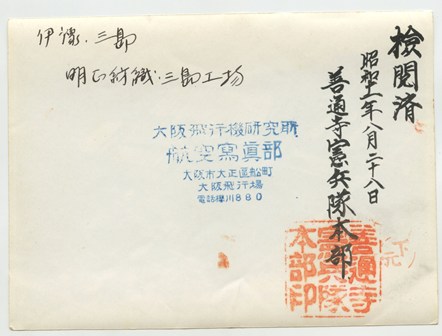 検閲済
昭和十一年八月二十八日
善通寺憲兵隊本部
伊豫.三島
明正紡織.三島工場
大阪飛行機研究所
航空寫眞部
大阪市大正區船町
大阪飛行場
電話櫻川880
善通寺
憲兵隊
本部印